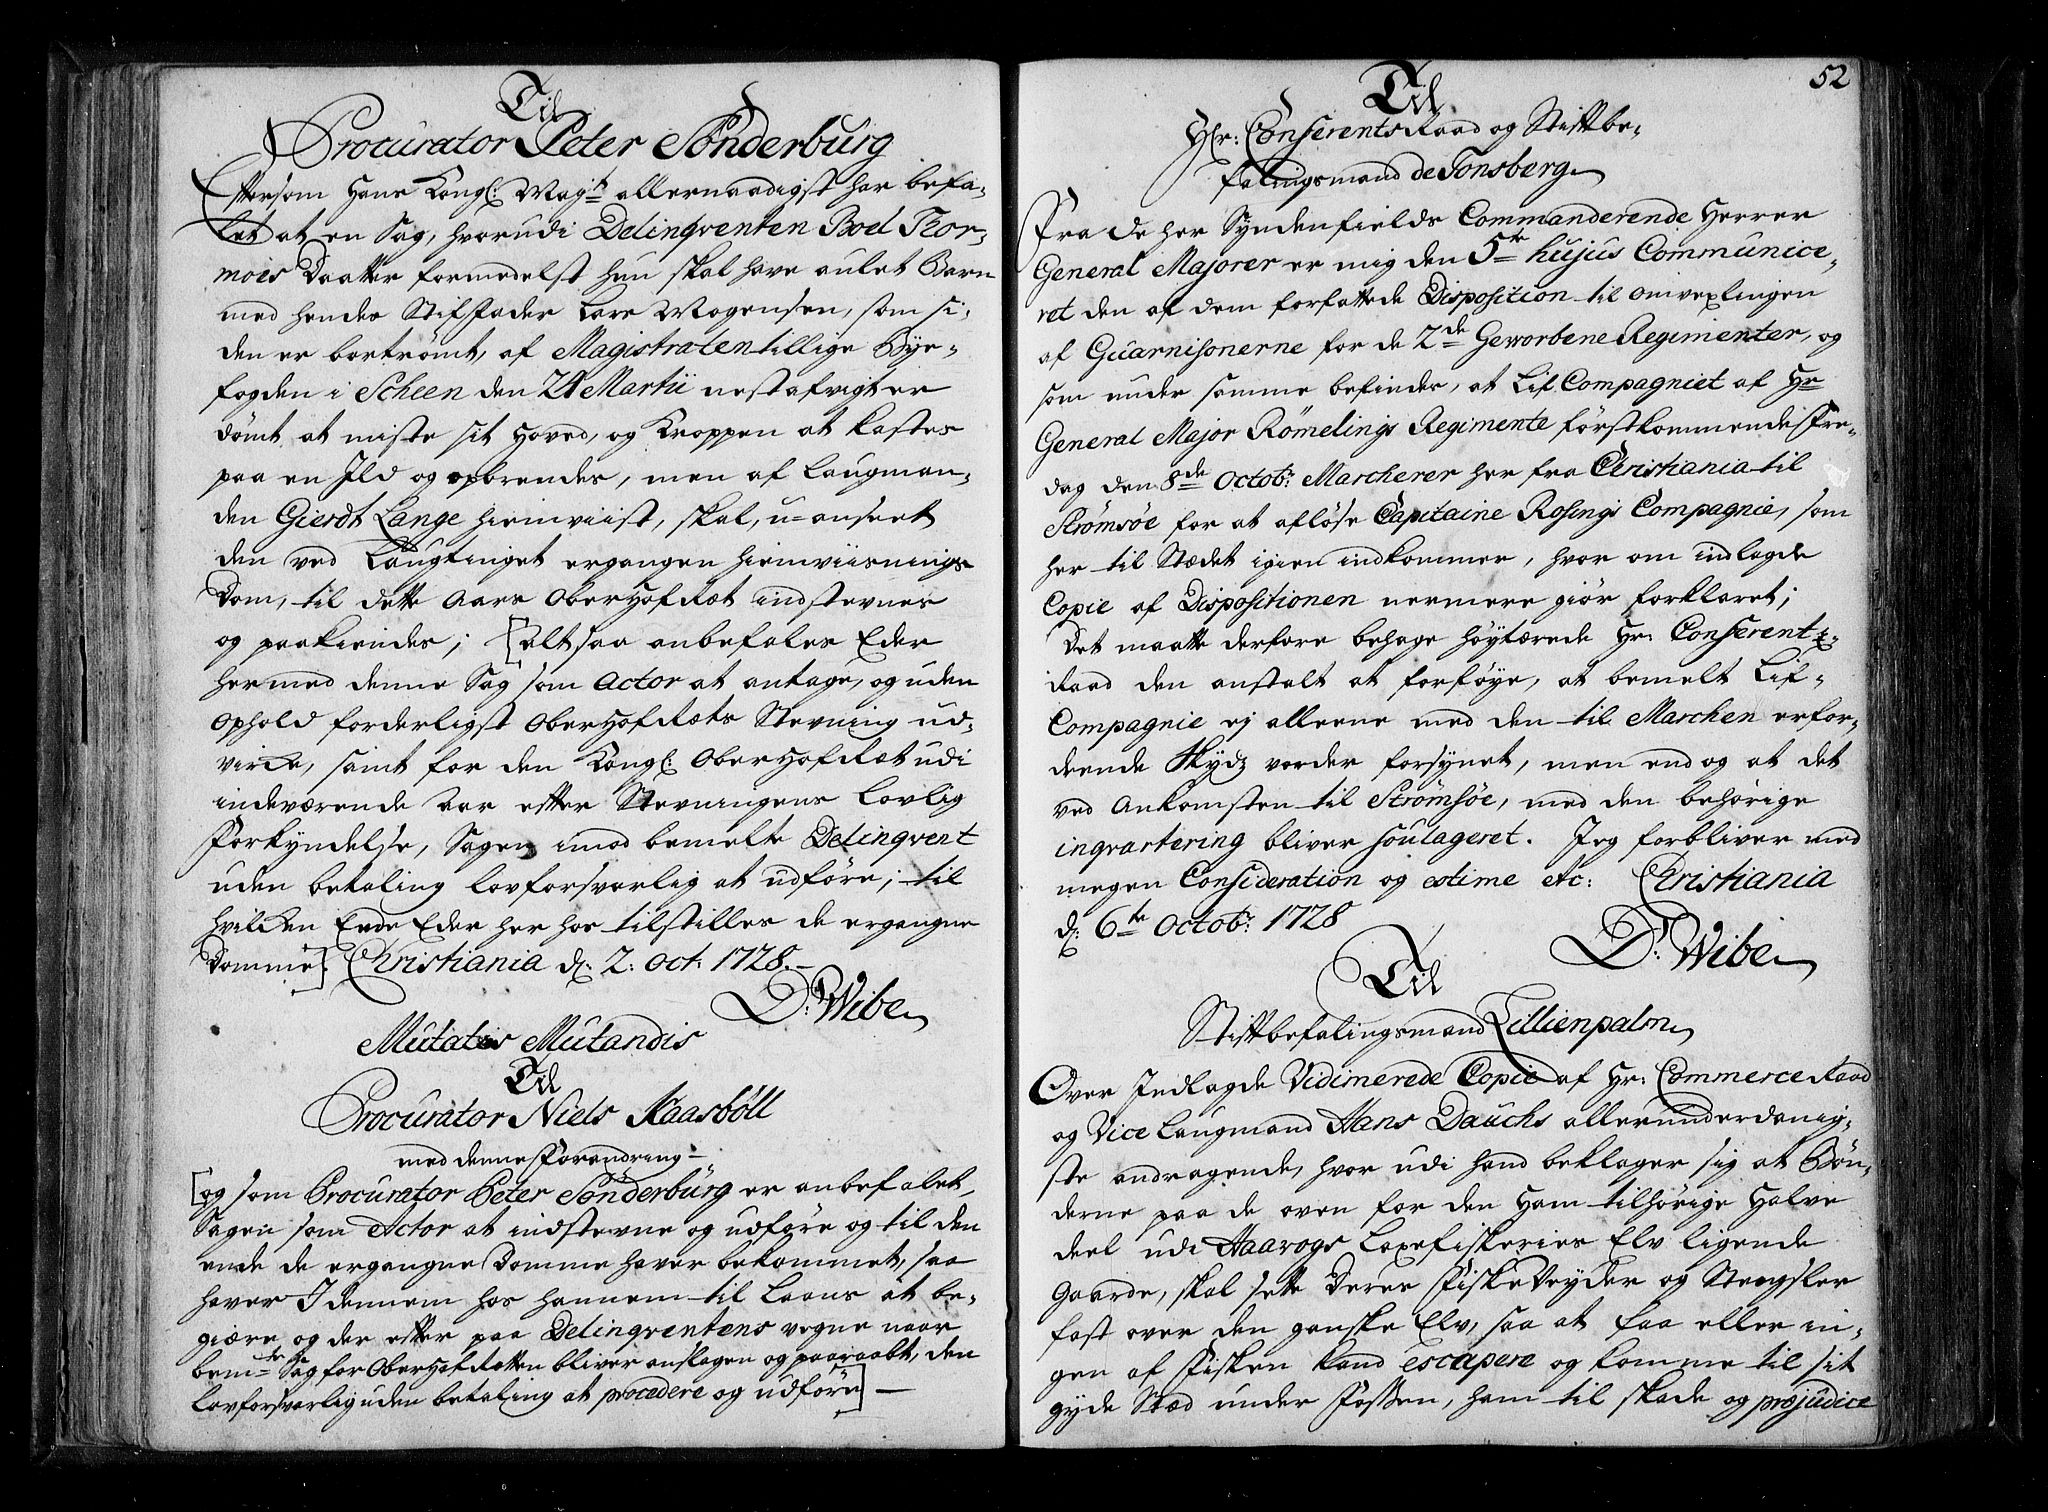 Til
Procurator Peter Sönderburg
Eftersom Hans Kongl: Mayts allernaadigst har befa-
let at en Sag, hvorudi Delinqventen Boel Thor-
moes Daatter formedelst hun skal have aulet Barn
med hendes Stiffader Lars Mogensen, som si-
den er bortrömt, af Magistraten tillige Bye-
fogden i Scheen den 21 Martii nestafvigt er
dömt at miste sit Hoved, og Kroppen at kastes
paa en Ild og opbrendes, men af Laugman-
den Gierdt Lange hiemviist, skal, u-anseet
den ved Laugtinget ergangen hiemviisnings
Dom, til dette Aars OberHofRæt indstevnes
og paakiendes; [altsaa anbefales Eder
hermed denne Sag som Actor at antage, og uden
Ophold forderligst OberHofRæts Stevning ud-
virke, samt for den Kongl: OberHofRæt udi
indeværende Aar efter Stevningens lovlig
Forkyndelse, Sagen imod bemelte Delinqvent
uden betaling lovforsvarlig at udföre; til
hvilken Ende Eder her hos tilstilles de ergangne
Domme]. Christiania d: 2: Oct: 1728.
D: Wibe
Mutatis Mutandis
Til
Procurator Niels Kaasböll
med denne Forandring
[og som Procurator Peter Sönderburg er anbefalet,
Sagen som Actor at indstevne og udföre og til den
ende de ergangne Domme haver bekommet, saa
haver I dennem hos hannem til Laans at be-
giære og der efter paa Delinqventens vegne naar
bemte Sag for OberHofRetten bliver anslagen og paaraabt, den
lovforsvarlig uden betaling at procedere og udföre]
52
Til
Hr: ConferentsRaad og Stiftbe-
falingsmand de Tonsberg
Fra de her Syndenfields Commanderende Herrer
General Majorer er mig den 5te hujus Communice-
ret den af dem forfattede Disposition til omvexlingen
af Guarnisonerne for de 2de Geworbene Regimenter, og
som under samme befindes, at Lif Compagniet af Hr
General Major Römelings Regimente förstkommende Fre-
dag den 8de Octobr: Marcherer her fra Christiania til
Strömsöe for at aflöse Capitaine Rosings Compagnie, som
her til Stædet igien indkommer, hvor om indlagde
Copie af Dispositionen nermere giör forklaret;
Det maatte derfore behage höytærede Hr: Conferentz-
Raad den anstalt at forföye, at bemelt Lif-
Compagnie ej alleene med den til Marchen erfor-
deende Skydz vorder forsynet, men end og at det
ved Ankomsten til Strömsöe, med den behörige
inqvartering bliver soulageret. Jeg forbliver med
megen Consideration og estime etc: Christiania
d: 6te Octobr: 1728
D: Wibe
Til
Stiftbefalingsmand Lillienpalm
Over Indlagde Vidimerede Copie af Hr: Commerce Raad
og Vice Laugmand Hans Dauchs allerunderdanig-
ste andragende, hvor udi hand beklager sig at Bön-
derne paa de oven for den Ham tilhörige Halve
deel udi Haarogs Laxefiskeries Elv ligende
Gaarde, skal sette Deres FiskeVeyder og Stengsler
fast over den ganske Elv, saa at faa eller in-
gen af Fisken kand escapere og komme til sit
gyde Stæd under Fossen, ham til skade og præjudice